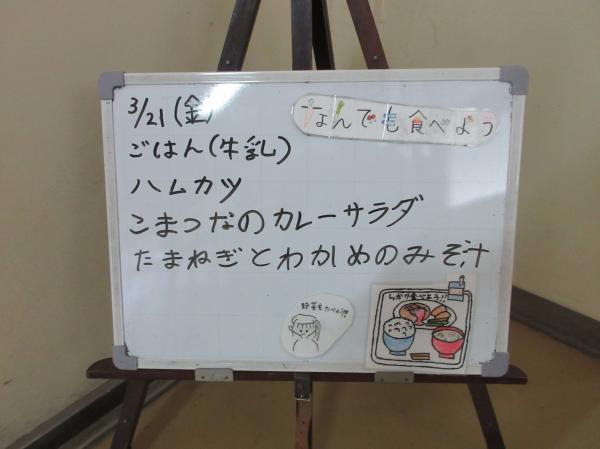 3/21(金)
なんでも食べよう
ごはん(牛乳)
ハムカツ
こまつなのカレーサラダ
たまねぎとわかめのみそ汁
しっかり食べよう!!